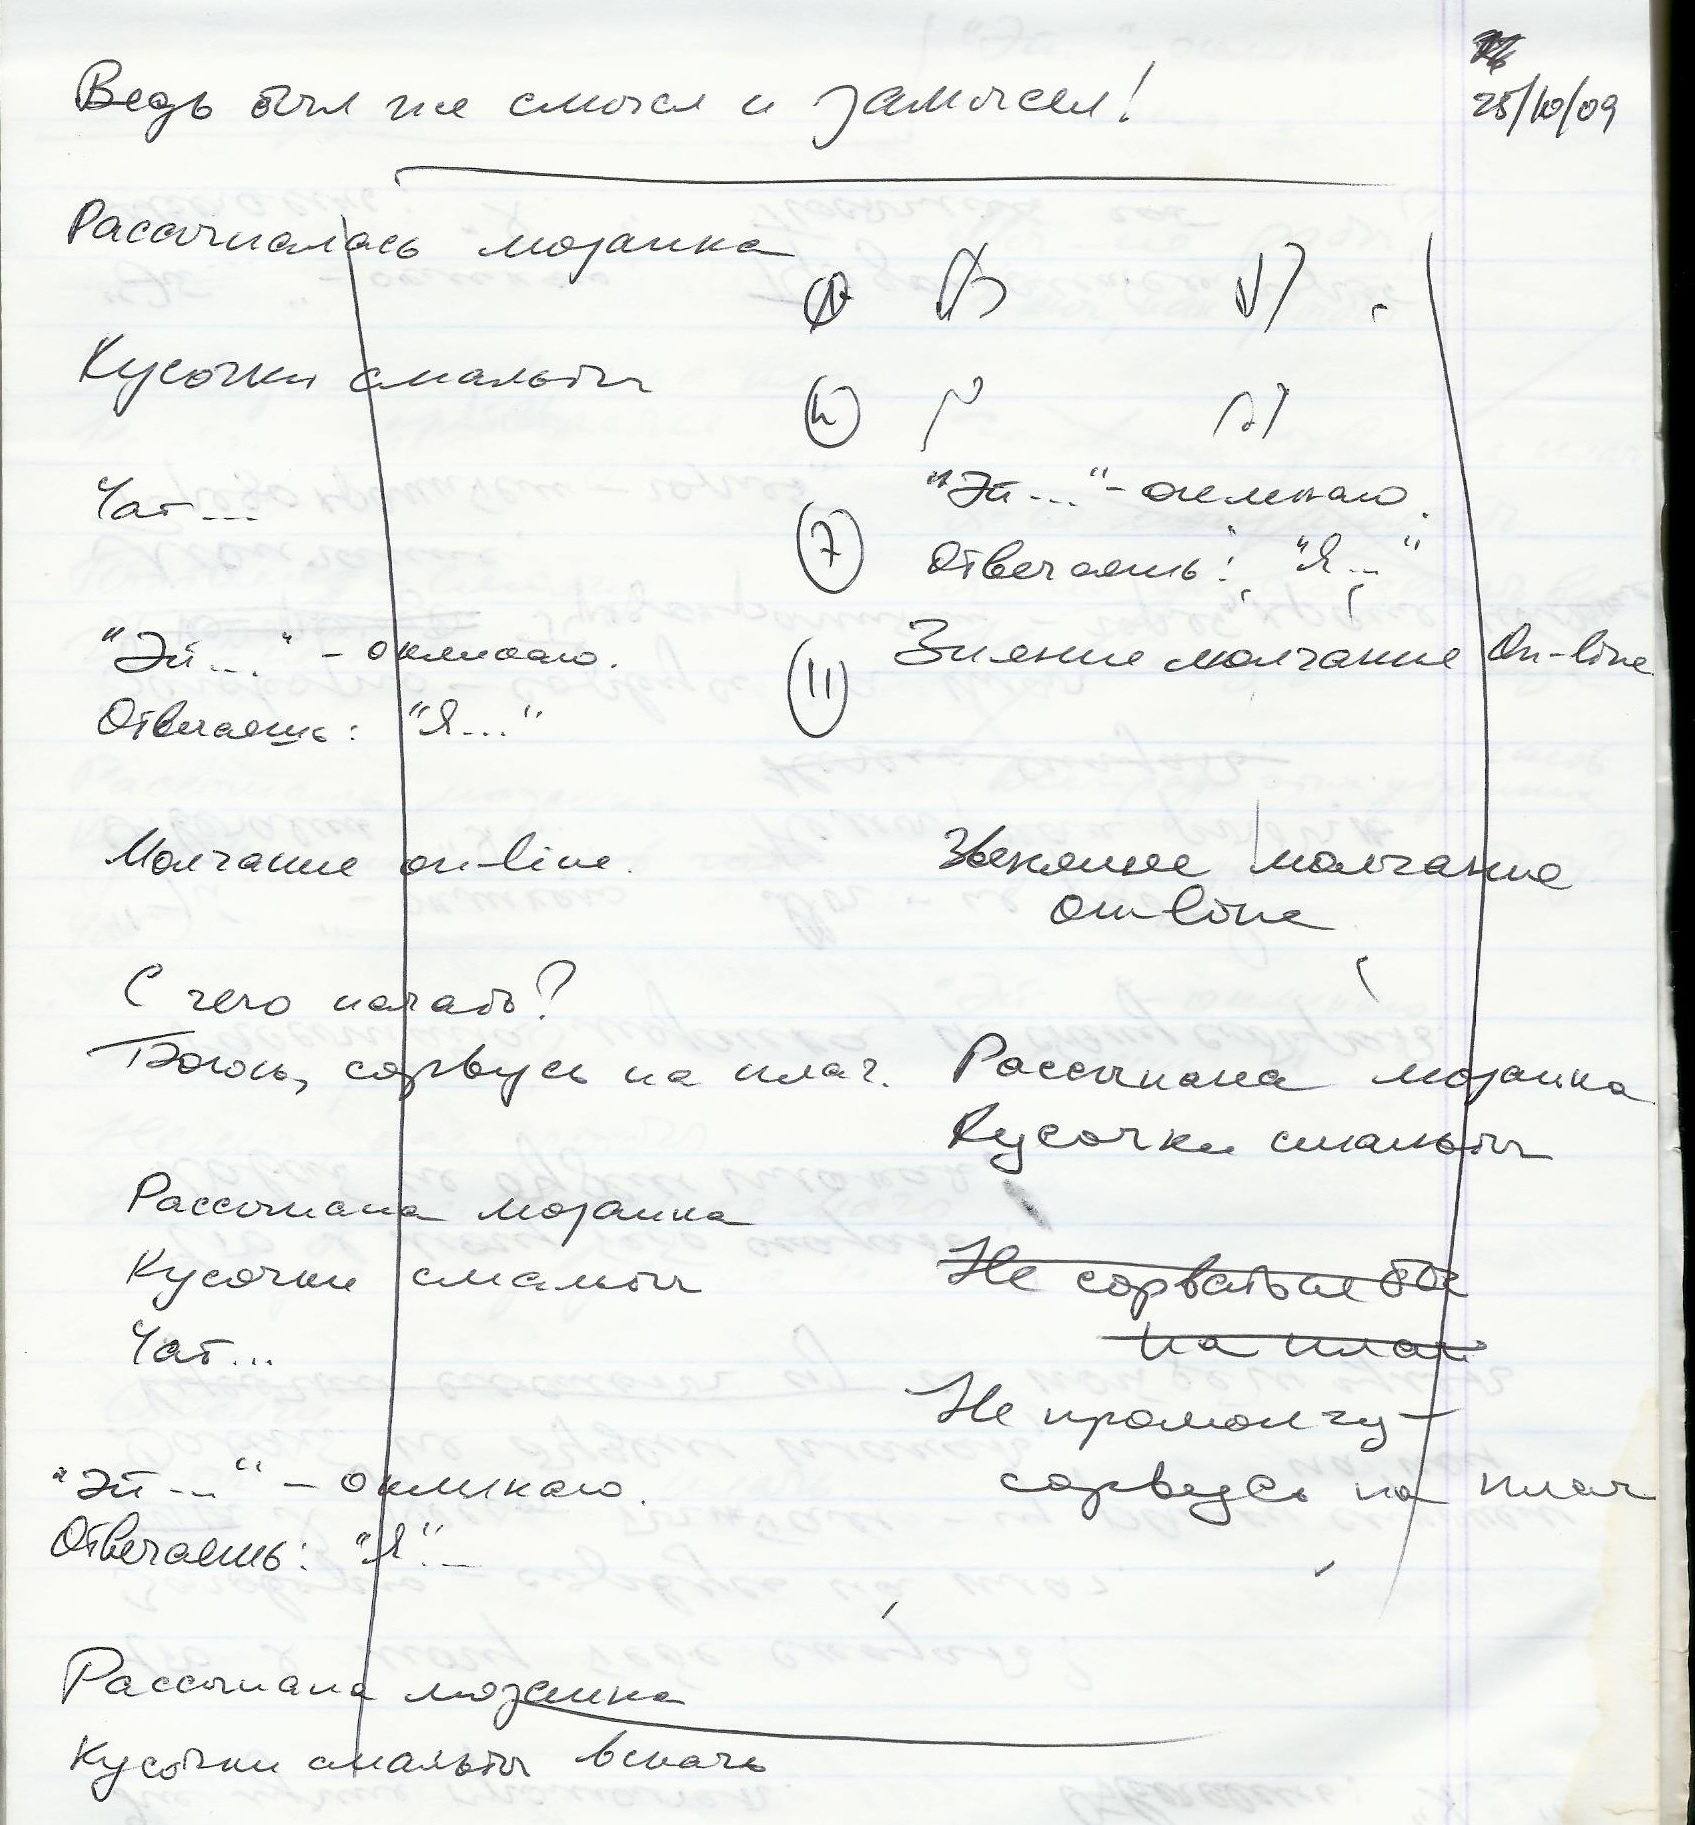 25/10/09
Ведь был же смысл и замысел!
Рассыпалась мозаика
Кусочки смальты
Чат...
"Эй..." - окликаю.
Отвечаешь: "Я..."
Молчание on-line.
С чего начать?
Боюсь, сорвусь на плач.
Рассыпана мозаика
Кусочки смальты
Чат...
"Эй..." - окликаю.
Отвечаешь: "Я"...
Рассыпана мозаика
Кусочки смальты вскачь
7
"Эй..." - окликаю.
Отвечаешь: "Я..."
11
молчание On-line
молчание
on-line
Рассыпана мозаика
Кусочки смальты
Не сорваться бы
на плач
Не промолчу -
сорвусь на плач